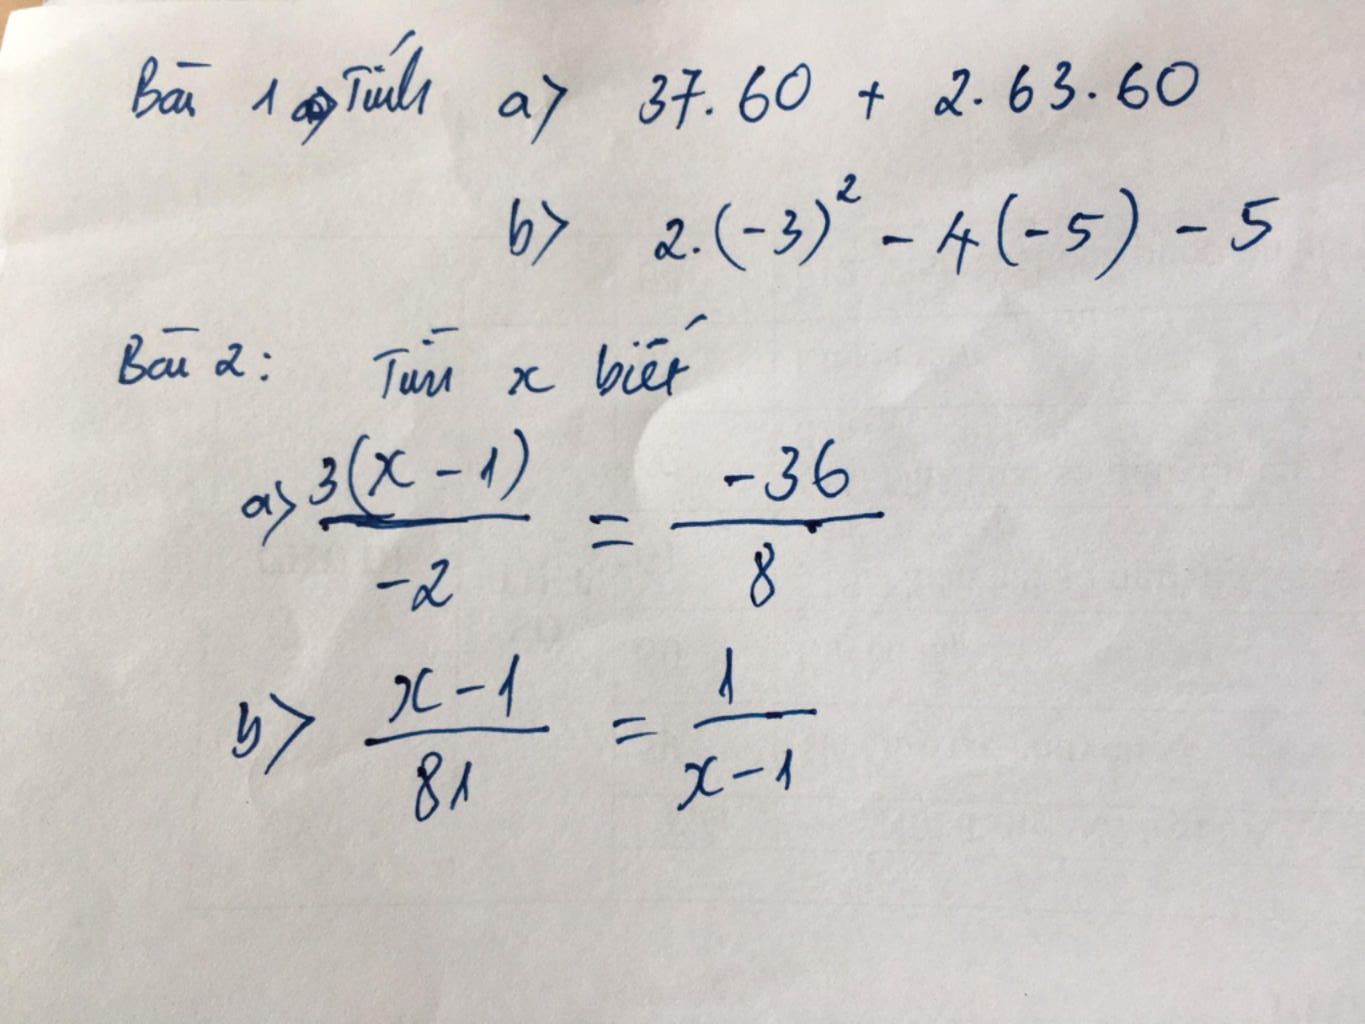 Bài 1 Tính a> 37.60 + 2.63.60
b> 2.(-3)² - 4(-5) - 5
Bài 2: Tìm x biết
a> 3(x - 1) / -2 = -36 / 8
b> x - 1 / 81 = 1 / x - 1